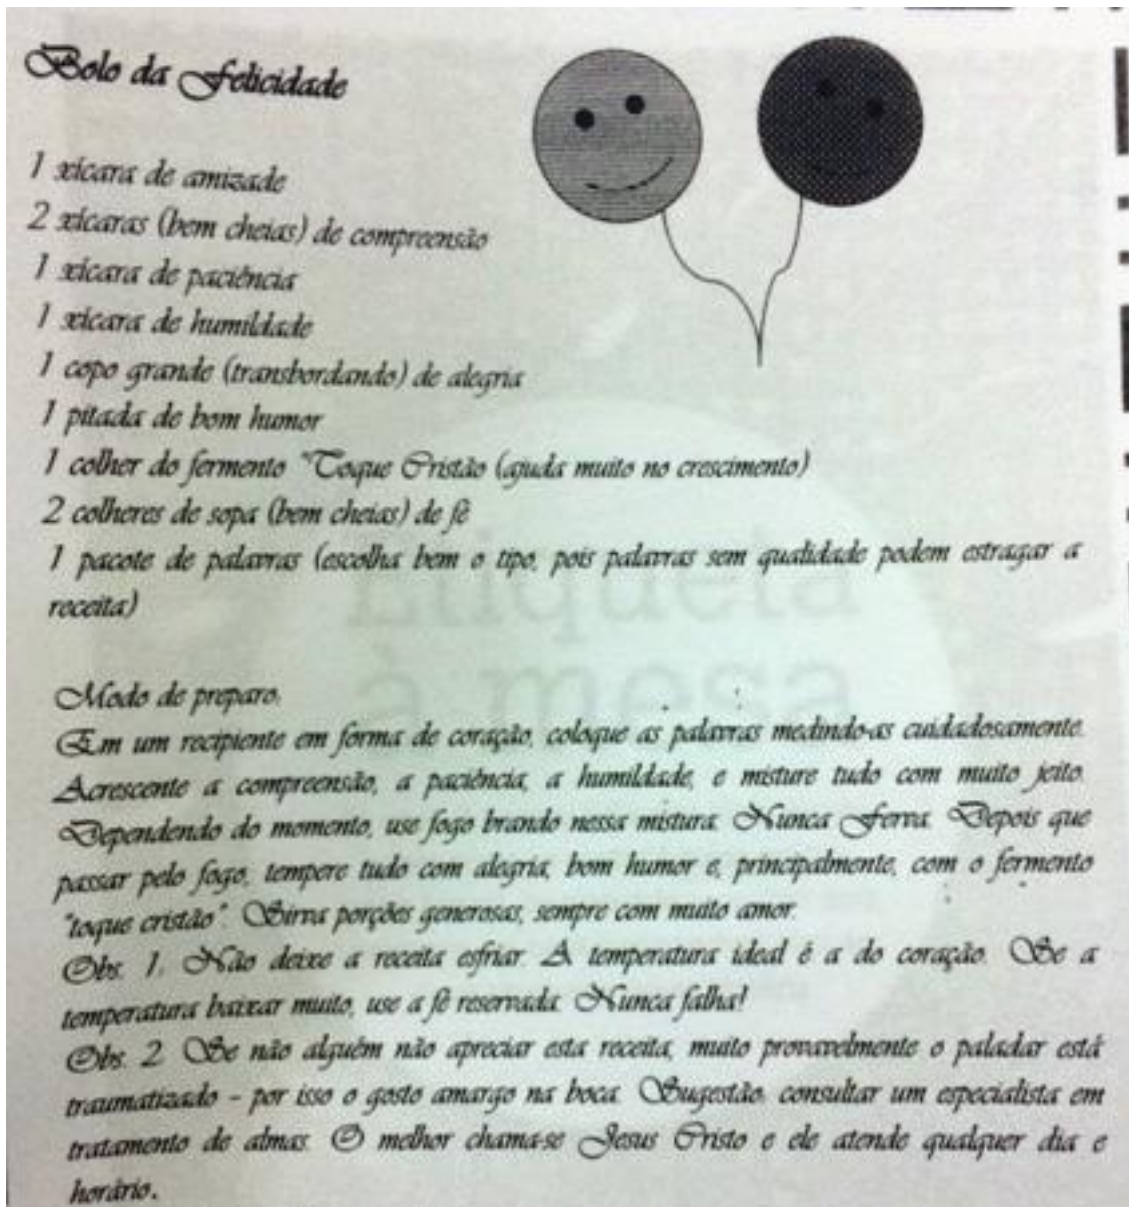 Bolo da Felicidade
1 xícara de amizade
2 xícaras (bem cheias) de compreensão
1 xícara de paciência
1 xícara de humildade
1 copo grande (transbordando) de alegria
1 pitada de bom humor
1 colher do fermento "Toque Cristão (ajuda muito no crescimento)
2 colheres de sopa (bem cheias) de fé
1 pacote de palavras (escolha bem o tipo, pois palavras sem qualidade podem estragar a
receita)
Etiqueta
à mesa
Modo de preparo:
Em um recipiente em forma de coração, coloque as palavras medindo-as cuidadosamente.
Acrescente a compreensão, a paciência, a humildade, e misture tudo com muito jeito.
Dependendo do momento, use fogo brando nessa mistura. Nunca Ferva. Depois que
passar pelo fogo, tempere tudo com alegria, bom humor e, principalmente, com o fermento
"toque cristão". Sirva porções generosas, sempre com muito amor.
Obs. 1: Não deixe a receita esfriar. A temperatura ideal é a do coração. Se a
temperatura baixar muito, use a fé reservada. Nunca falha!
Obs. 2: Se não alguém não apreciar esta receita, muito provavelmente o paladar está
traumatizado - por isso o gosto amargo na boca. Sugestão: consultar um especialista em
tratamento de almas. O melhor chama-se Jesus Cristo e ele atende qualquer dia e
horário.